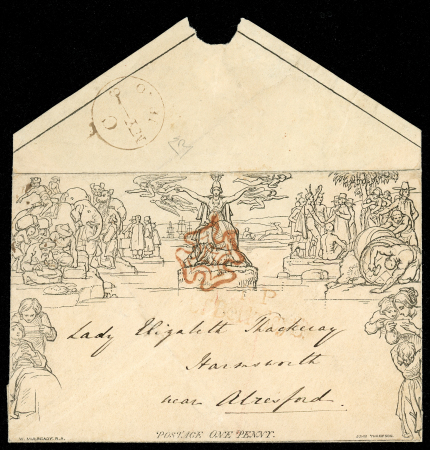 Lady Elizabeth Thackeray
Harmsworth
near Alresford.
POSTAGE ONE PENNY.
W. MULREADY, R.A.
JOHN THOMPSON